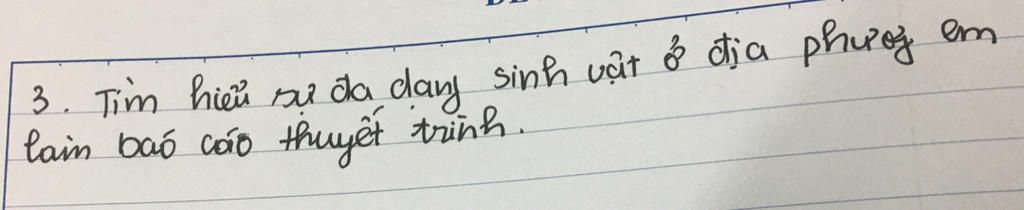 3. Tìm hiểu sự đa dạng sinh vật ở địa phương em
làm báo cáo thuyết trình.